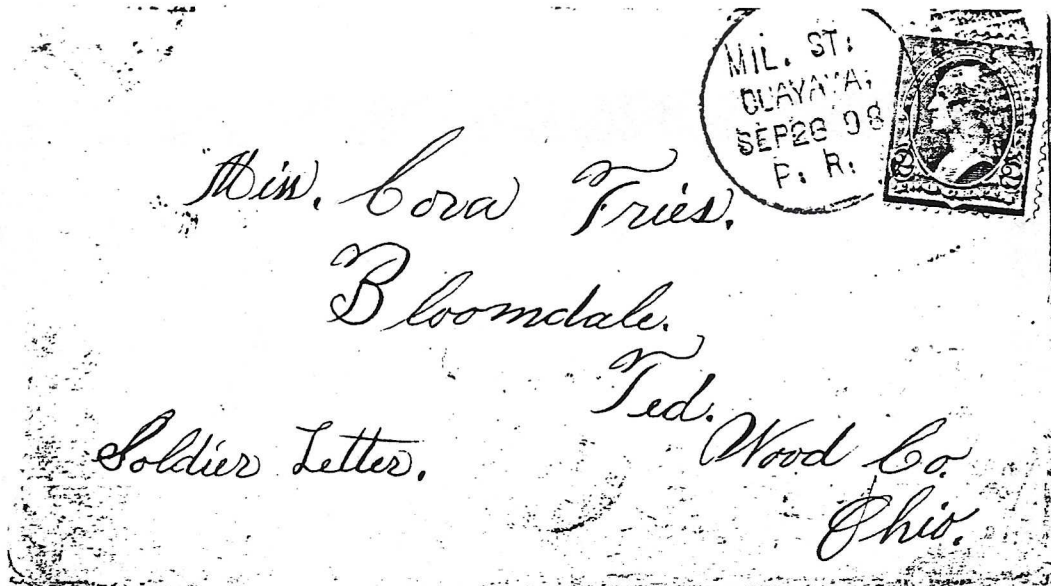 MIL. ST:
GUAYAMA,
SEP 28 98
P. R.
2 2
Miss. Cora Fries.
Bloomdale.
Ted.
Wood Co.
Ohio.
Soldier Letter.